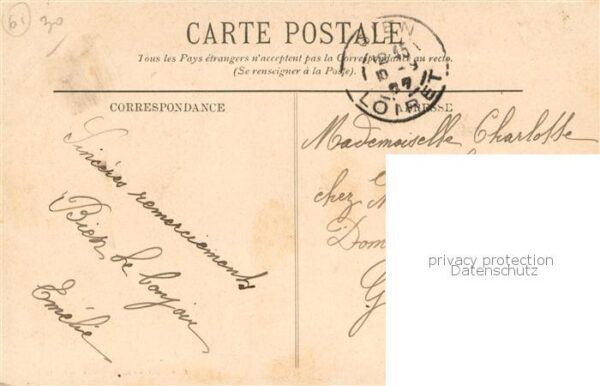 61 30
CARTE POSTALE
Tous les Pays étrangers n'acceptent pas la Correspondance au recto.
(Se renseigner à la Poste).
CORRESPONDANCE
ADRESSE
LOIRET
Sincères remerciements
Bien le bonjour
Emélie
Mademoiselle Charlotte
chez
Dom
G
privacy protection
Datenschutz